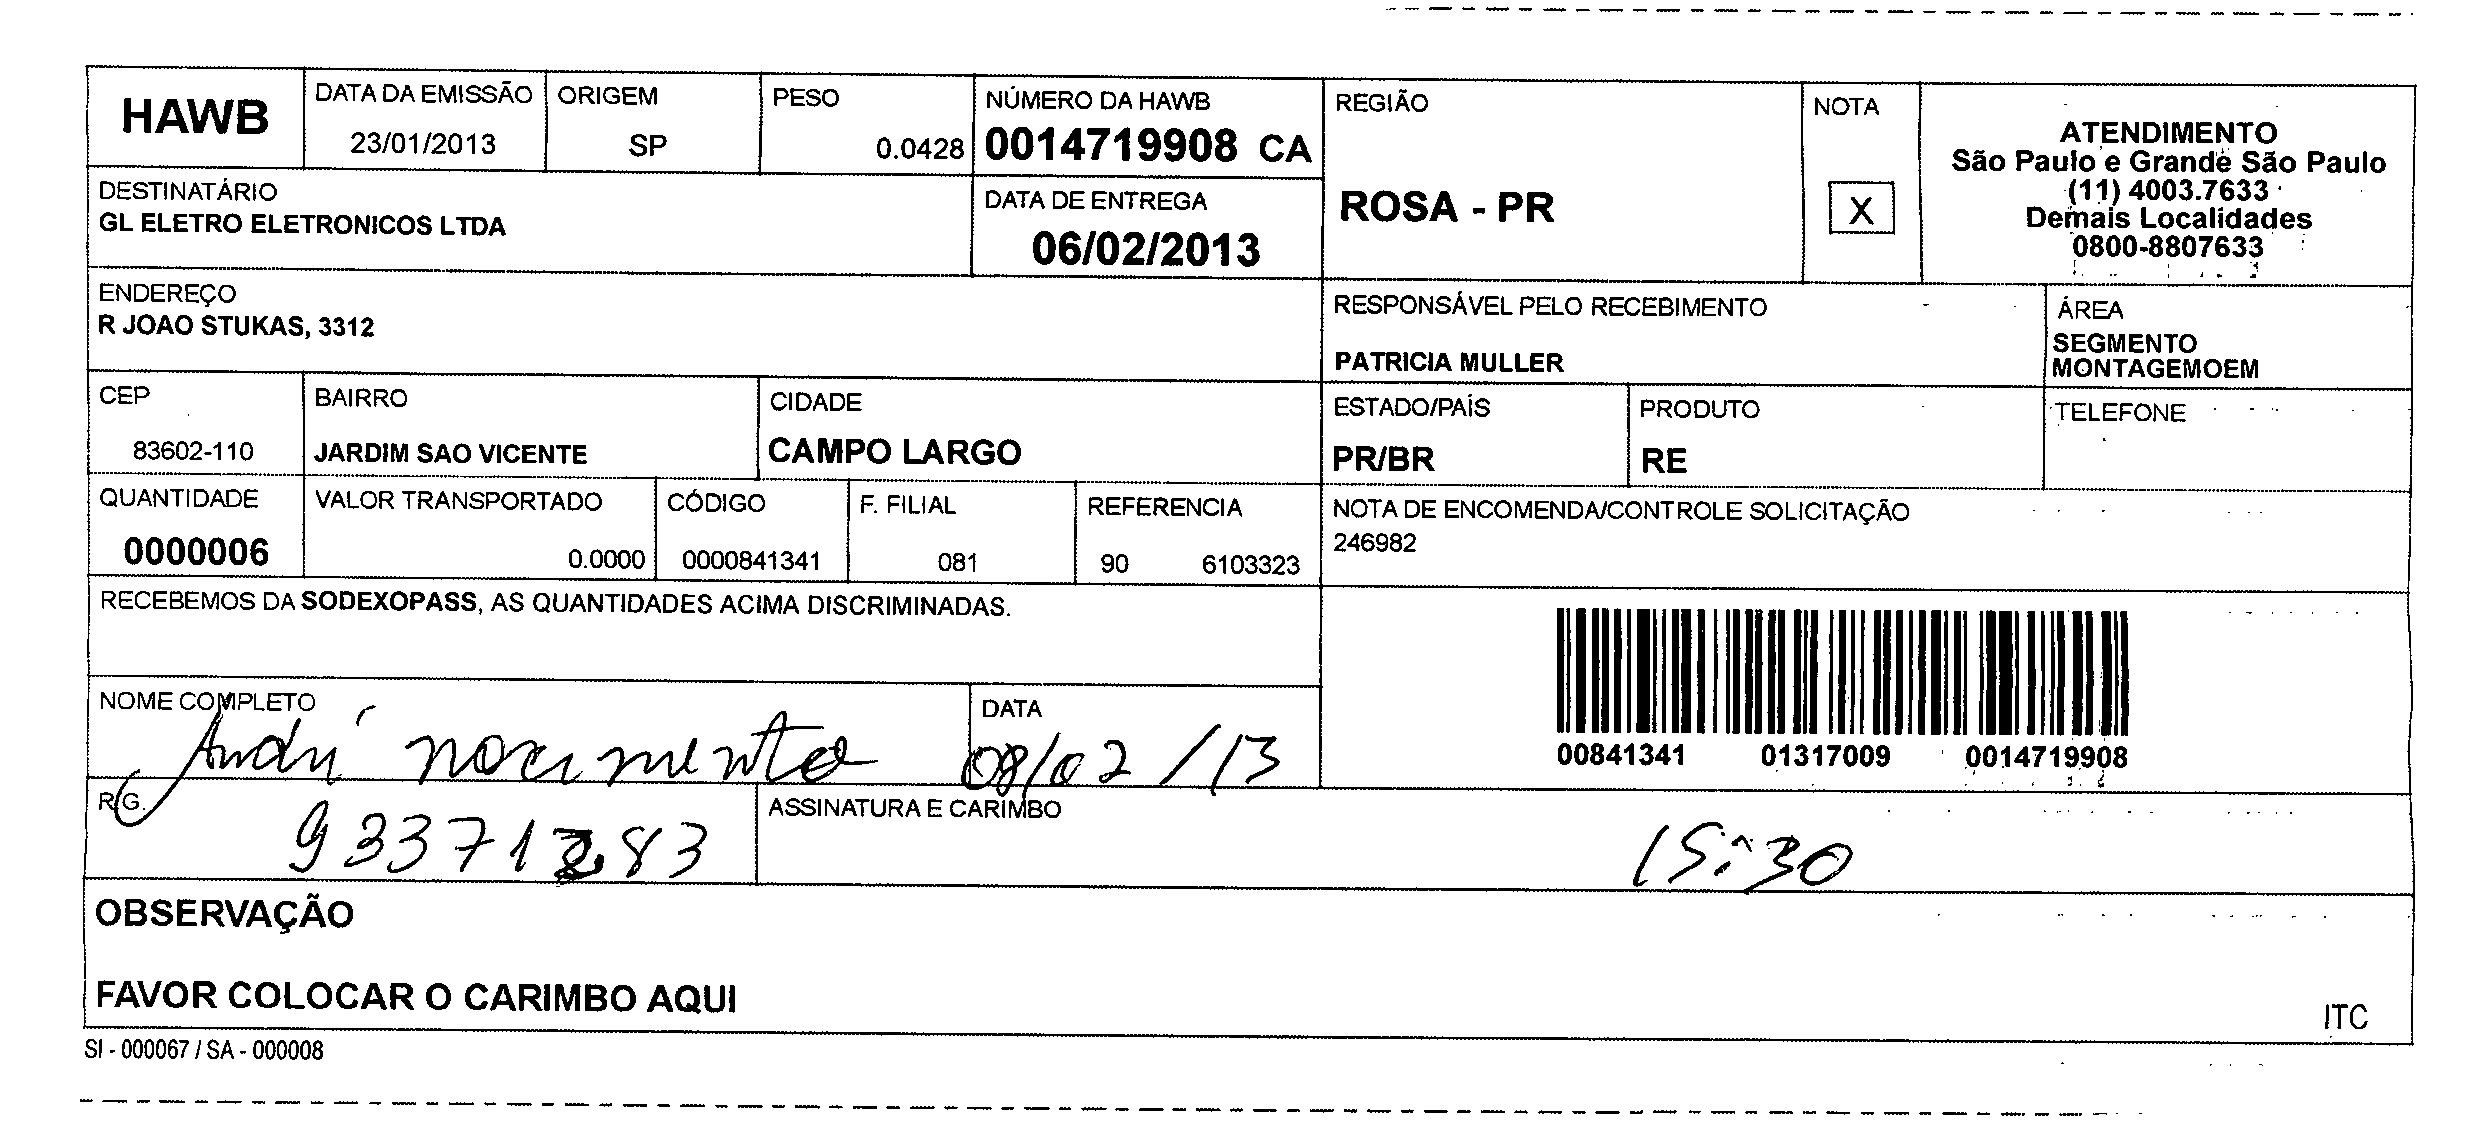 HAWB
DATA DA EMISSÃO
23/01/2013
ORIGEM
SP
PESO
0.0428
NÚMERO DA HAWB
0014719908 CA
REGIÃO
ROSA - PR
NOTA
X
ATENDIMENTO
São Paulo e Grande São Paulo
(11) 4003.7633
Demais Localidades
0800-8807633
DESTINATÁRIO
GL ELETRO ELETRONICOS LTDA
DATA DE ENTREGA
06/02/2013
ENDEREÇO
R JOAO STUKAS, 3312
RESPONSÁVEL PELO RECEBIMENTO
PATRICIA MULLER
ÁREA
SEGMENTO
MONTAGEMOEM
CEP
83602-110
BAIRRO
JARDIM SAO VICENTE
CIDADE
CAMPO LARGO
ESTADO/PAÍS
PR/BR
PRODUTO
RE
TELEFONE
QUANTIDADE
0000006
VALOR TRANSPORTADO
0.0000
CÓDIGO
0000841341
F. FILIAL
081
REFERENCIA
90 6103323
NOTA DE ENCOMENDA/CONTROLE SOLICITAÇÃO
246982
RECEBEMOS DA SODEXOPASS, AS QUANTIDADES ACIMA DISCRIMINADAS.
00841341 01317009 0014719908
NOME COMPLETO
André nascimento
DATA
08/02/13
R.G.
93371283
ASSINATURA E CARIMBO
15:30
OBSERVAÇÃO
FAVOR COLOCAR O CARIMBO AQUI
ITC
SI - 000067 / SA - 000008